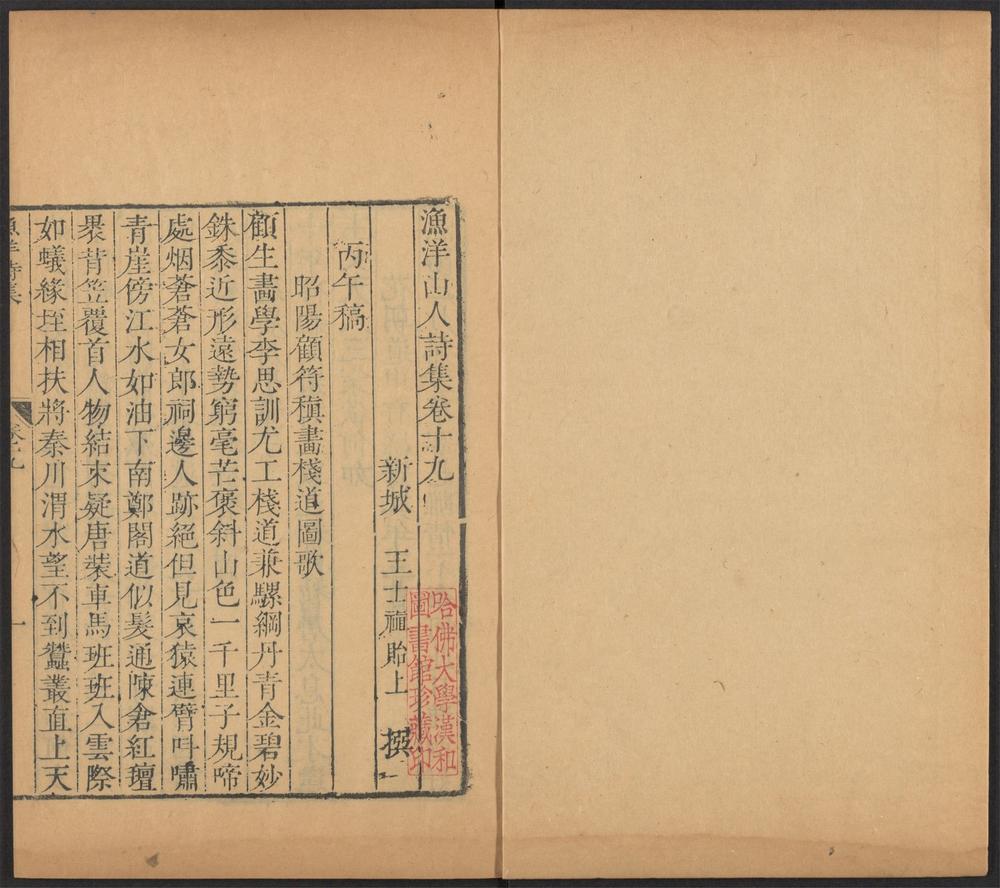 漁洋山人詩集卷十九
新城 王士禛貽上 撰
丙午稿
昭陽顧符稹畫棧道圖歌
顧生畫學李思訓尤工棧道兼騾綱丹青金碧妙
銖黍近形遠勢窮毫芒褒斜山色一千里子規啼
處烟蒼蒼女郎祠邊人跡絕但見哀猿連臂呌嘯
青崖傍江水如油下南鄭閣道似髮通陳倉紅氊
褁背笠覆首人物結束疑唐裝車馬班班入雲際
如蟻緣垤相扶將秦川渭水望不到蠶叢直上天
漁洋詩集
卷十九
一
哈佛大學漢和
圖書館珍藏印